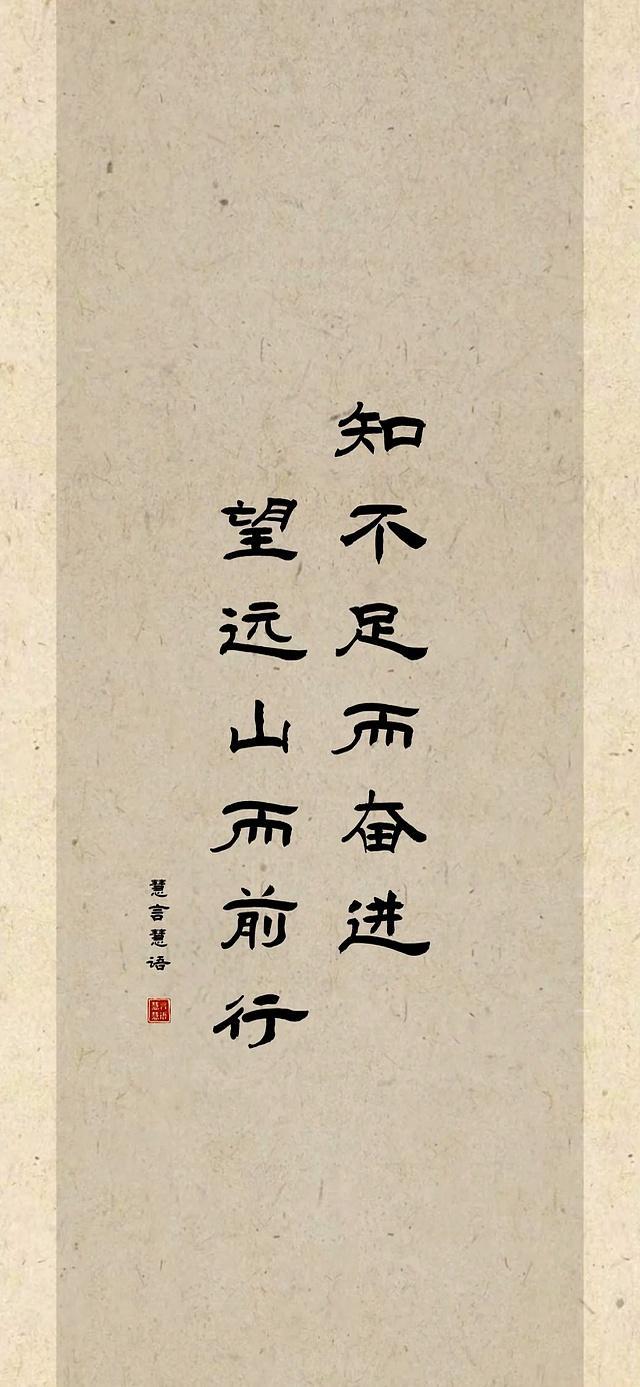 知不足而奋进
望远山而前行
慧言慧语
慧言慧语